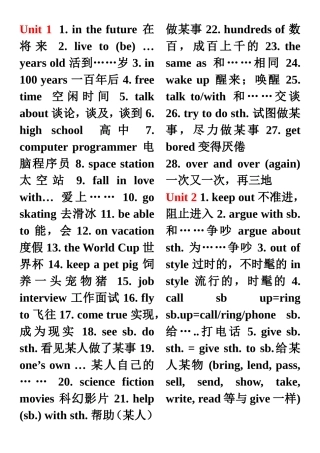 Unit 1 1. in the future 在
将来 2. live to (be) …
years old 活到……岁 3. in
100 years 一百年后 4. free
time 空闲时间 5. talk
about 谈论，谈及，谈到 6.
high school 高中 7.
computer programmer 电
脑程序员 8. space station
太空站 9. fall in love
with… 爱上…… 10. go
skating 去滑冰 11. be able
to 能，会 12. on vacation
度假 13. the World Cup 世
界杯 14. keep a pet pig 饲
养一头宠物猪 15. job
interview 工作面试 16. fly
to 飞往 17. come true 实现，
成为现实 18. see sb. do
sth. 看见某人做了某事 19.
one's own … 某人自己的
…… 20. science fiction
movies 科幻影片 21. help
(sb.) with sth. 帮助（某人）
做某事 22. hundreds of 数
百，成百上千的 23. the
same as 和……相同 24.
wake up 醒来；唤醒 25.
talk to/with 和……交谈
26. try to do sth. 试图做某
事，尽力做某事 27. get
bored 变得厌倦
28. over and over (again)
一次又一次，再三地
Unit 2 1. keep out 不准进，
阻止进入 2. argue with sb.
和……争吵 argue about
sth. 为……争吵 3. out of
style 过时的，不时髦的 in
style 流行的，时髦的 4.
call sb up=ring
sb.up=call/ring/phone sb.
给…..打电话 5. give sb.
sth. = give sth. to sb.给某
人某物 (bring, lend, pass,
sell, send, show, take,
write, read 等与 give 一样)